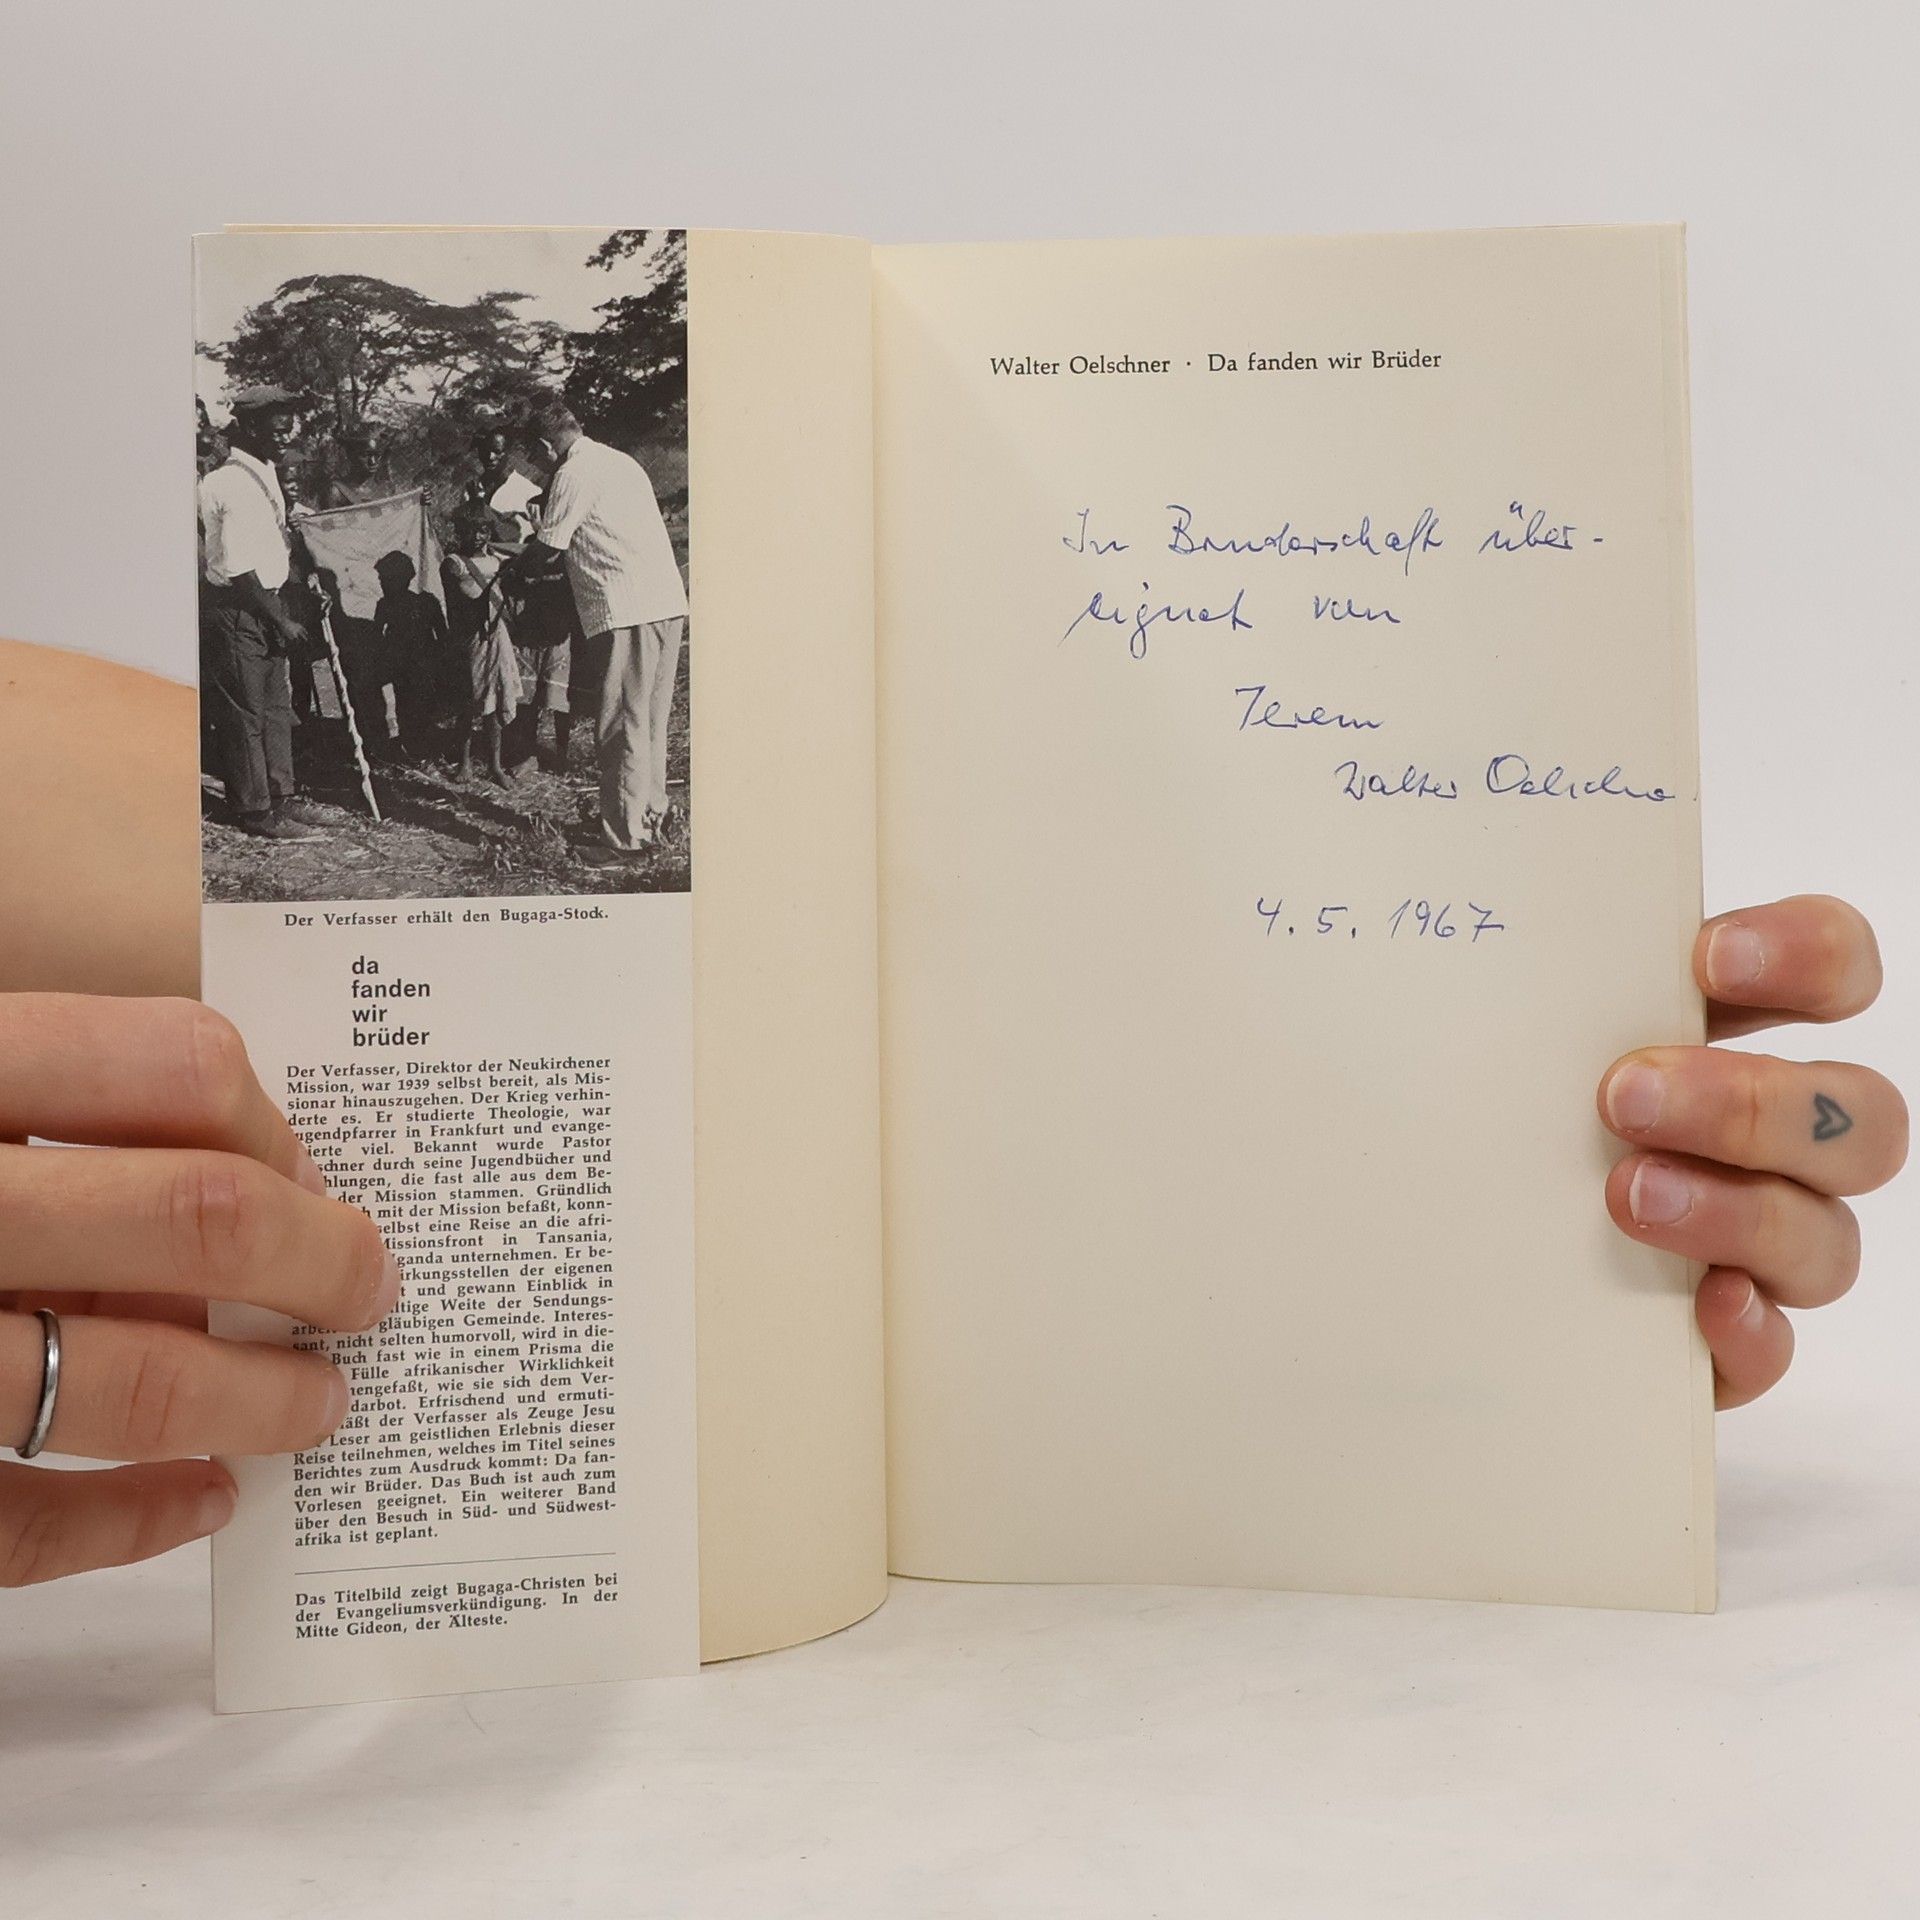 Der Verfasser erhält den Bugaga-Stock.
da
fanden
wir
brüder
Der Verfasser, Direktor der Neukirchener
Mission, war 1939 selbst bereit, als Mis-
sionar hinauszugehen. Der Krieg verhin-
derte es. Er studierte Theologie, war
ugendpfarrer in Frankfurt und evange-
ierte viel. Bekannt wurde Pastor
schner durch seine Jugendbücher und
hlungen, die fast alle aus dem Be-
der Mission stammen. Gründlich
h mit der Mission befaßt, konn-
selbst eine Reise an die afri-
Missionsfront in Tansania,
ganda unternehmen. Er be-
irkungsstellen der eigenen
t und gewann Einblick in
ltige Weite der Sendungs-
arbei gläubigen Gemeinde. Interes-
sant, nicht selten humorvoll, wird in die-
Buch fast wie in einem Prisma die
Fülle afrikanischer Wirklichkeit
mengefaßt, wie sie sich dem Ver-
darbot. Erfrischend und ermuti-
läßt der Verfasser als Zeuge Jesu
Leser am geistlichen Erlebnis dieser
Reise teilnehmen, welches im Titel seines
Berichtes zum Ausdruck kommt: Da fan-
den wir Brüder. Das Buch ist auch zum
Vorlesen geeignet. Ein weiterer Band
über den Besuch in Süd- und Südwest-
afrika ist geplant.
Das Titelbild zeigt Bugaga-Christen bei
der Evangeliumsverkündigung. In der
Mitte Gideon, der Älteste.
Walter Oelschner · Da fanden wir Brüder
In Bruderschaft über-
eignet von
Ihrem
Walter Oelschner
4. 5. 1967